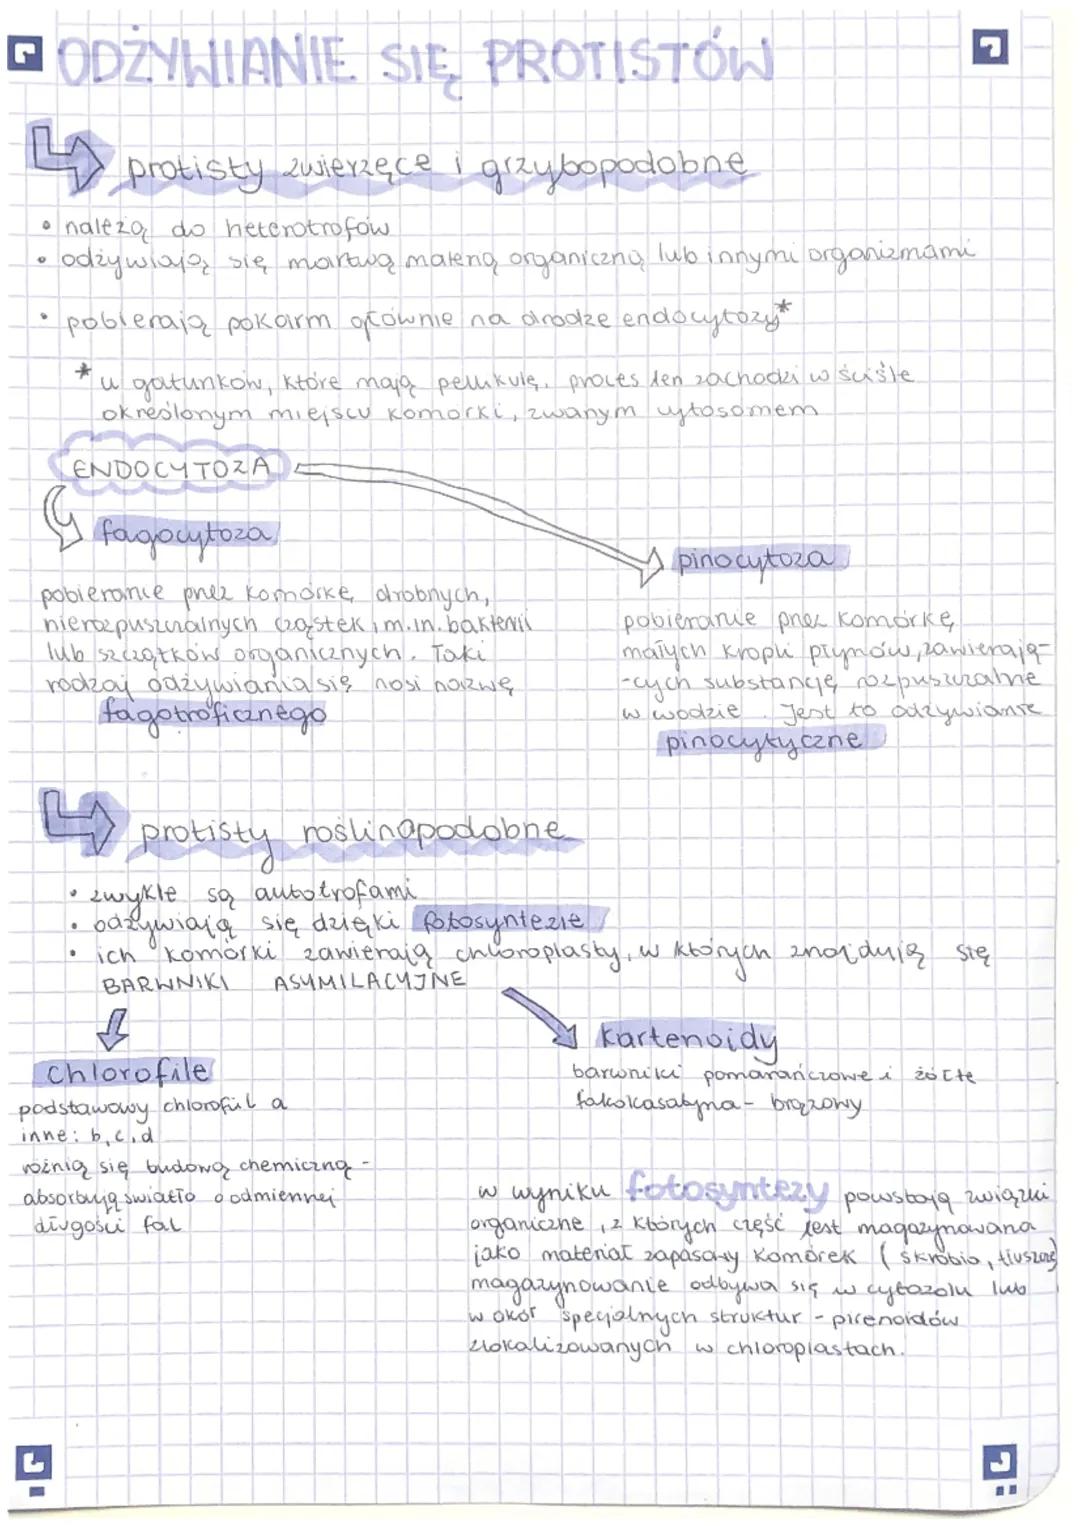 ODŻYWIANIE SIĘ PROTISTÓW
protisty zwierzęce i grzybopodobne
• należą do heterotrofów
• odżywiają się martwą materią organiczną lub innymi organizmami
• pobierają pokarm głównie na drodze endocytozy*
* u gatunków, które mają pellikulę, proces ten zachodzi w ściśle
określonym miejscu komórki, zwanym cytosomem
ENDOCYTOZA
fagocytoza
pobieranie przez komórkę drobnych,
nierozpuszczalnych cząstek, m.in. bakterii
lub szczątków organicznych. Taki
rodzaj odżywiania się nosi nazwę
fagotroficznego
pinocytoza
pobieranie przez komórkę
małych kropli płynów, zawierają-
-cych substancję rozpuszczalne
w wodzie. Jest to odżywianie
pinocytyczne
protisty roślinopodobne
• zwykle są autotrofami
• odżywiają się dzięki fotosyntezie
• ich komórki zawierają chloroplasty, w których znajdują się
BARWNIKI ASYMILACYJNE
chlorofile
podstawowy chlorofil a
inne: b, c, d
różnią się budową chemiczną -
absorbują światło o odmiennej
długości fal
kartenoidy
barwniki pomarańczowe i żółte
- brązowy
w wyniku fotosyntezy powstają związki
organiczne, z których część jest magazynowana
jako materiał zapasowy komórek (skrobia, tłuszcze)
magazynowanie odbywa się w cytozolu lub
w okół specjalnych struktur - pirenoidów
zlokalizowanych w chloroplastach.